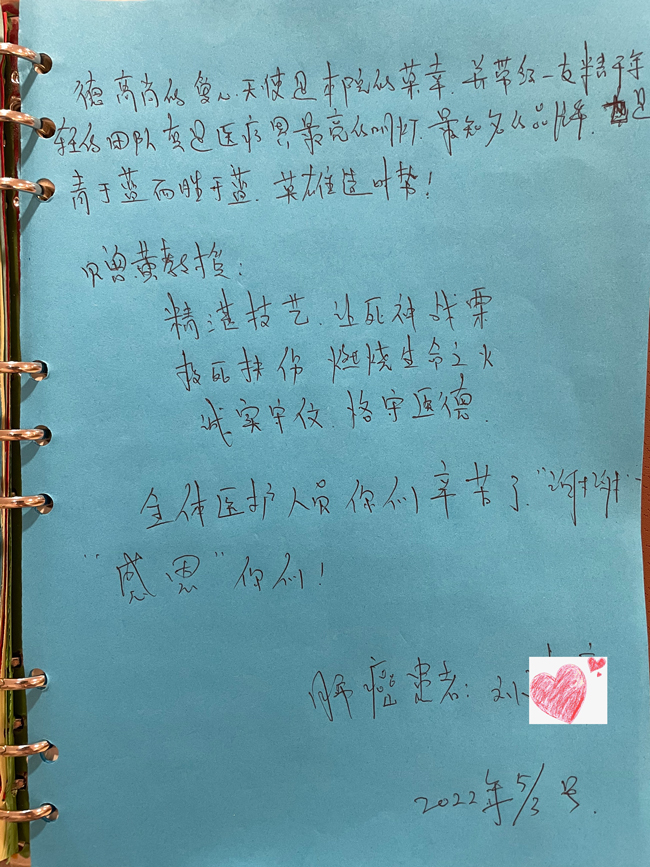 德高尚的复心天使是本院的荣幸.并带领一支精干年
轻的团队真是医疗界最亮的明灯.最知名的品牌.是
青于蓝而胜于蓝.英雄造时势!
赠黄教授:
精湛技艺.让死神战栗
救死扶伤 燃烧生命之火
诚实守信.恪守医德.
全体医护人员你们辛苦了"谢谢"
"感恩"你们!
肺癌患者:刘
2022年5/3号.